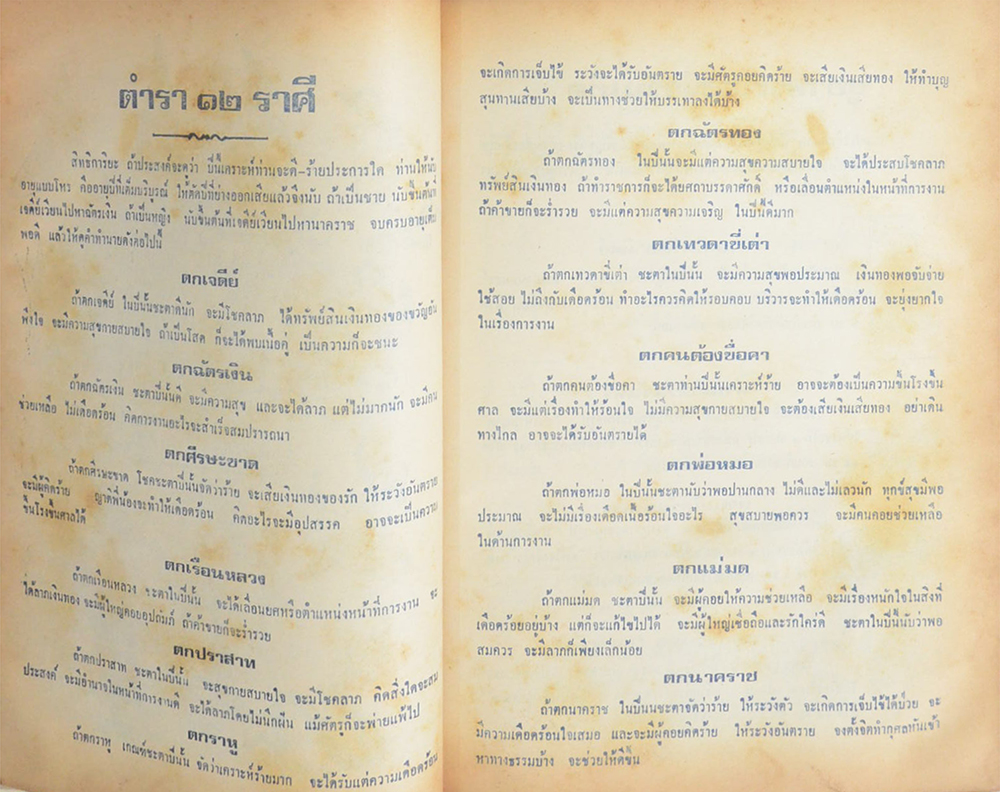 ตำรา ๑๒ ราศี
สิทธิการิยะ ถ้าประสงค์จะดูว่า ปีนี้เคราะห์ท่านจะดี-ร้ายประการใด ท่านให้นับ
อายุแบบโหร คืออายุที่เต็มบริบูรณ์ ให้ตัดปีที่ย่างออกเสียแล้วจึงนับ ถ้าเป็นชาย นับขึ้นต้นที่
เจดีย์เวียนไปหาฉัตรเงิน ถ้าเป็นหญิง นับขึ้นต้นที่เจดีย์เวียนไปหานาคราช จบครบอายุเต็ม
พอดี แล้วให้ดูคำทำนายดังต่อไปนี้
ตกเจดีย์
ถ้าตกเจดีย์ ในปีนั้นชะตาดีนัก จะมีโชคลาภ ได้ทรัพย์สินเงินทองของขวัญอัน
พึงใจ จะมีความสุขกายสบายใจ ถ้าเป็นโสด ก็จะได้พบเนื้อคู่ เป็นความก็จะชนะ
ตกฉัตรเงิน
ถ้าตกฉัตรเงิน ชะตาปีนั้นดี จะมีความสุข และจะได้ลาภ แต่ไม่มากนัก จะมีคน
ช่วยเหลือ ไม่เดือดร้อน คิดการงานอะไรจะสำเร็จสมปรารถนา
ตกศีรษะขาด
ถ้าตกศีรษะขาด โชคชะตาปีนั้นจัดว่าร้าย จะเสียเงินทองของรัก ให้ระวังอันตราย
จะมีผู้คิดร้าย ญาติพี่น้องจะทำให้เดือดร้อน คิดอะไรจะมีอุปสรรค อาจจะเป็นความ
ขึ้นโรงขึ้นศาลได้
ตกเรือนหลวง
ถ้าตกเรือนหลวง ชะตาในปีนั้น จะได้เลื่อนยศหรือตำแหน่งหน้าที่การงาน จะ
ได้ลาภเงินทอง จะมีผู้ใหญ่คอยอุปถัมภ์ ถ้าค้าขายก็จะร่ำรวย
ตกปราสาท
ถ้าตกปราสาท ชะตาในปีนั้น จะสุขกายสบายใจ จะมีโชคลาภ คิดสิ่งใดจะสม
ประสงค์ จะมีอำนาจในหน้าที่การงานดี จะได้ลาภโดยไม่นึกฝัน แม้ศัตรูก็จะพ่ายแพ้ไป
ตกราหู
ถ้าตกราหู เกณฑ์ชะตาปีนั้น จัดว่าเคราะห์ร้ายมาก จะได้รับแต่ความเดือดร้อน
จะเกิดการเจ็บไข้ ระวังจะได้รับอันตราย จะมีศัตรูคอยคิดร้าย จะเสียเงินเสียทอง ให้ทำบุญ
สุนทานเสียบ้าง จะเป็นทางช่วยให้บรรเทาลงได้บ้าง
ตกฉัตรทอง
ถ้าตกฉัตรทอง ในปีนั้นจะมีแต่ความสุขความสบายใจ จะได้ประสบโชคลาภ
ทรัพย์สินเงินทอง ถ้าทำราชการก็จะได้ยศถาบรรดาศักดิ์ หรือเลื่อนตำแหน่งในหน้าที่การงาน
ถ้าค้าขายก็จะร่ำรวย จะมีแต่ความสุขความเจริญ ในปีนี้ดีมาก
ตกเทวดาขี่เต่า
ถ้าตกเทวดาขี่เต่า ชะตาในปีนั้น จะมีความสุขพอประมาณ เงินทองพอจับจ่าย
ใช้สอย ไม่ถึงกับเดือดร้อน ทำอะไรควรคิดให้รอบคอบ บริวารจะทำให้เดือดร้อน จะยุ่งยากใจ
ในเรื่องการงาน
ตกคนต้องขื่อคา
ถ้าตกคนต้องขื่อคา ชะตาท่านปีนั้นเคราะห์ร้าย อาจจะต้องเป็นความขึ้นโรงขึ้น
ศาล จะมีแต่เรื่องทำให้ร้อนใจ ไม่มีความสุขกายสบายใจ จะต้องเสียเงินเสียทอง อย่าเดิน
ทางไกล อาจจะได้รับอันตรายได้
ตกพ่อหมอ
ถ้าตกพ่อหมอ ในปีนั้นชะตานับว่าพอปานกลาง ไม่ดีและไม่เลวนัก ทุกข์สุขมีพอ
ประมาณ จะไม่มีเรื่องเดือดเนื้อร้อนใจอะไร สุขสบายพอควร จะมีคนคอยช่วยเหลือ
ในด้านการงาน
ตกแม่มด
ถ้าตกแม่มด ชะตาปีนั้น จะมีผู้คอยให้ความช่วยเหลือ จะมีเรื่องหนักใจในสิ่งที่
เดือดร้อยอยู่บ้าง แต่ก็จะแก้ไขไปได้ จะมีผู้ใหญ่เชื่อถือและรักใคร่ดี ชะตาในปีนี้นับว่าพอ
สมควร จะมีลาภก็เพียงเล็กน้อย
ตกนาคราช
ถ้าตกนาคราช ในปีนั้นชะตาจัดว่าร้าย ให้ระวังตัว จะเกิดการเจ็บไข้ได้ป่วย จะ
มีความเดือดร้อนใจเสมอ และจะมีผู้คอยคิดร้าย ให้ระวังอันตราย จงตั้งจิตทำกุศลหันเข้า
หาทางธรรมบ้าง จะช่วยให้ดีขึ้น